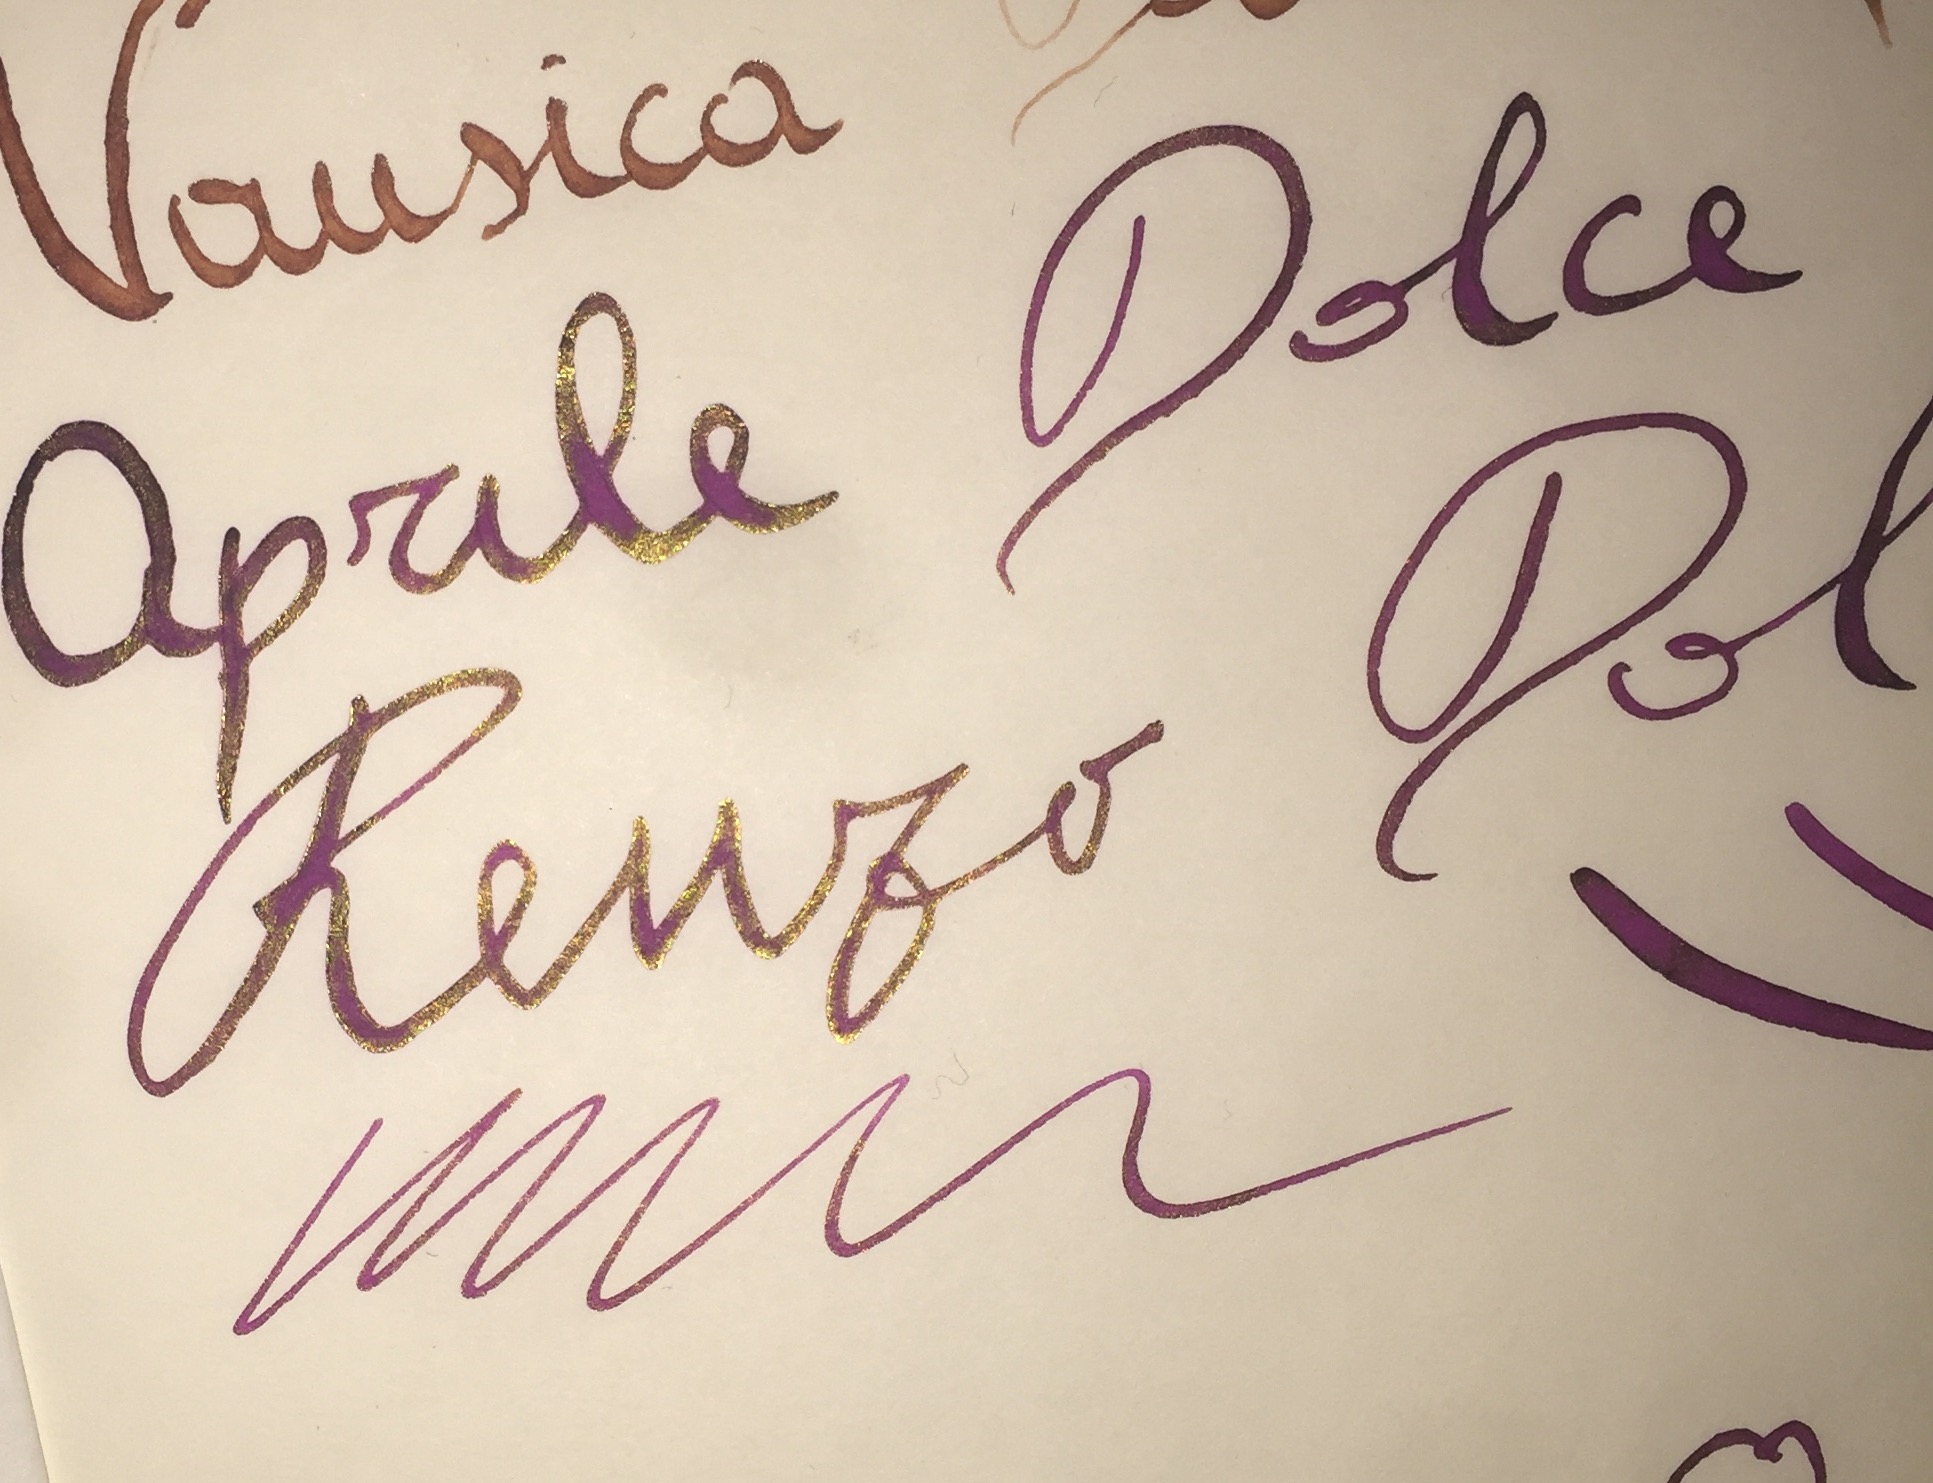 Vausica
Dolce
Aprile
Dol
Renzo